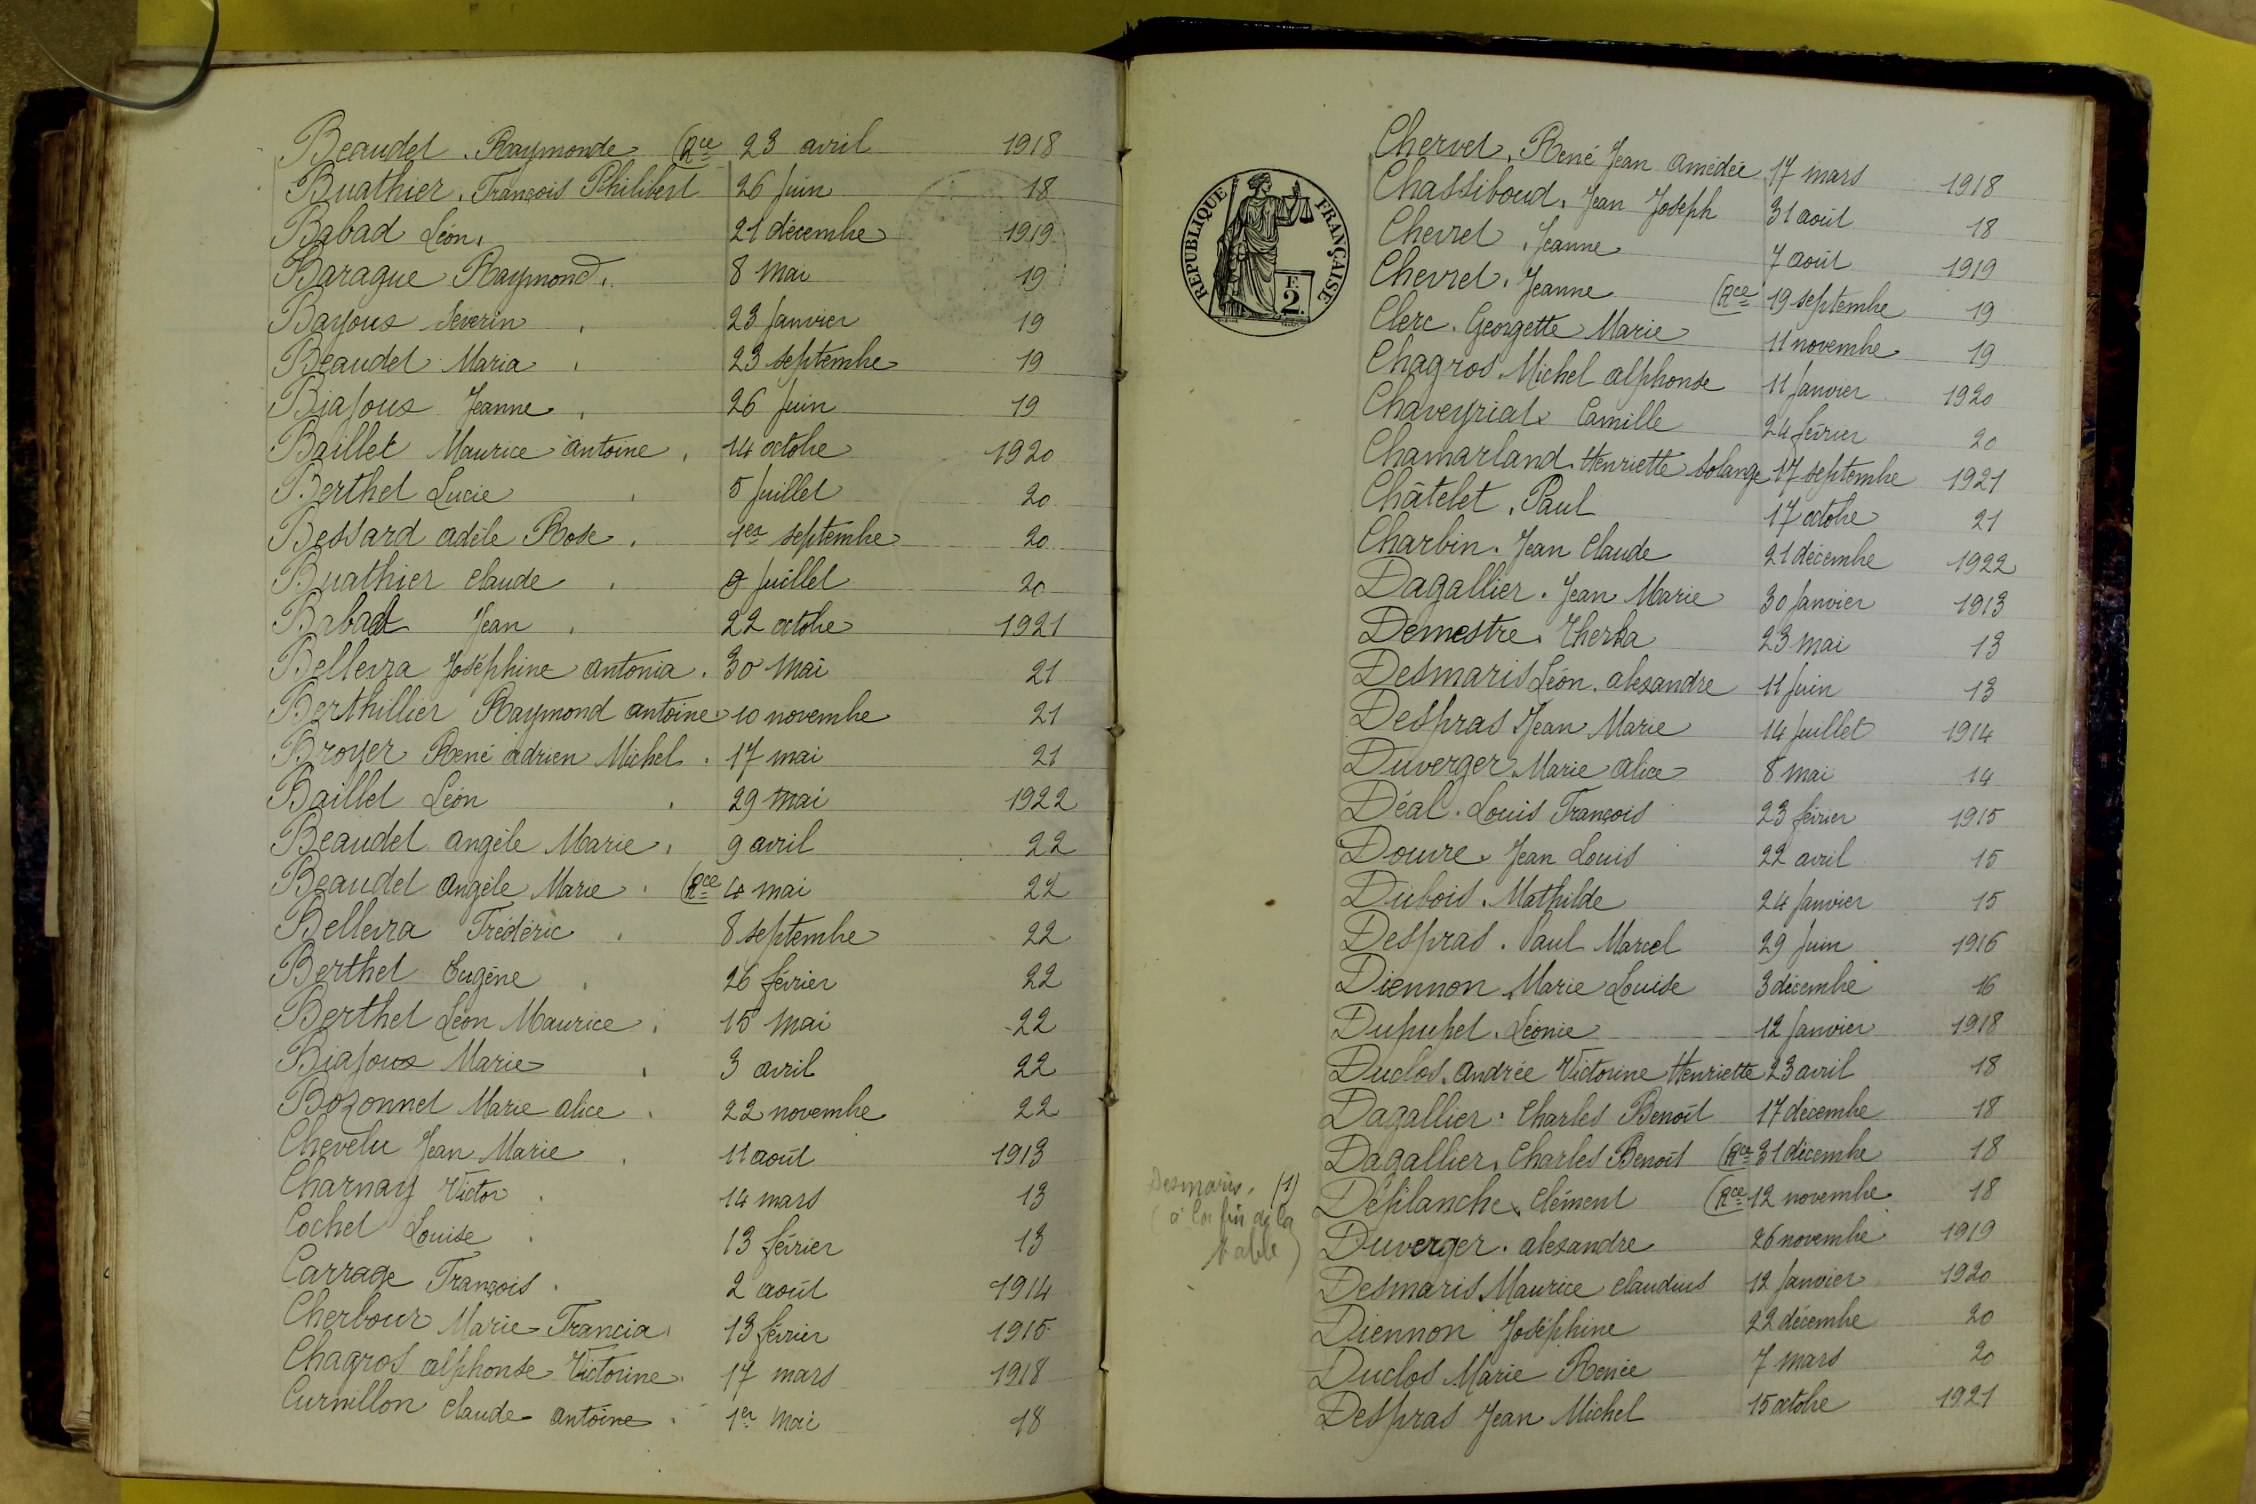 Beaudet. Raymonde (Rce 23 avril 1918
Buathier. François Philibert 26 Juin 18
Babad Léon. 21 décembre 1919
Barague Raymond. 8 Mai 19
Bayoux Séverin. 23 Janvier 19
Beaudet Maria. 23 septembre 19
Biajoux Jeanne. 26 Juin 19
Baillet Maurice antoine. 14 octobre 1920
Berthet Lucie. 5 Juillet 20
Bessard adèle Rose. 1er septembre 20
Buathier claude. 9 Juillet 20
Babad Jean. 22 octobre 1921
Bellevra Joséphine antonia. 30 Mai 21
Berthillier Raymond antoine. 10 novembre 21
Broyer René adrien Michel. 17 mai 21
Baillet Léon. 29 mai 1922
Beaudet angèle Marie. 9 avril 22
Beaudet angèle Marie. (Rce 4 mai 22
Bellevra Frédéric. 8 septembre 22
Berthet Eugène. 26 février 22
Berthet Léon Maurice. 15 Mai 22
Biajoux Marie. 3 avril 22
Bozonnet Marie alice. 22 novembre 22
Chevelu Jean Marie. 11 août 1913
Charnay Victor. 14 mars 13
Cochet Louise. 13 février 13
Carrage François. 2 août 1914
Cherbour Marie Francia. 13 février 1915
Chagros alphonse Victorine. 17 mars 1918
Curnillon claude antoine. 1er Mai 18
REPUBLIQUE FRANÇAISE
F.
2.
Chervet. René Jean amédée 17 mars 1918
Chassiboud. Jean Joseph 31 août 18
Chevret. Jeanne 7 août 1919
Chevret. Jeanne (Rce 19 septembre 19
Clerc. Georgette Marie 11 novembre 19
Chagros. Michel alphonse 11 Janvier 1920
Chaveyriat. Camille 24 février 20
Chamarland. Henriette solange 17 septembre 1921
Châtelet. Paul 17 octobre 21
Charbin. Jean claude 21 décembre 1922
Dagallier. Jean Marie 30 Janvier 1913
Demestre. 23 mai 13
Desmaris Léon. alexandre 11 Juin 13
Despras. Jean Marie 14 Juillet 1914
Duverger. Marie alice 8 mai 14
Déal. Louis François 23 février 1915
Douvre. Jean Louis 22 avril 15
Dubois. Mathilde 24 Janvier 15
Despras. Paul Marcel 29 Juin 1916
Diennon. Marie Louise 3 décembre 16
Dupupet. Léonie 12 Janvier 1918
Duclos. andrée Victorine Henriette 23 avril 18
Dagallier. Charles Benoît 17 décembre 18
Dagallier. Charles Benoît (Rce 31 décembre 18
Desmaris. (1)
(à la fin de la
table)
Déplanche. clément (Rce 12 novembre 18
Duverger. alexandre 26 novembre 1919
Desmaris. Maurice claudius 12 Janvier 1920
Diennon Joséphine 22 décembre 20
Duclos Marie Renée 7 mars 20
Despras Jean Michel 15 octobre 1921